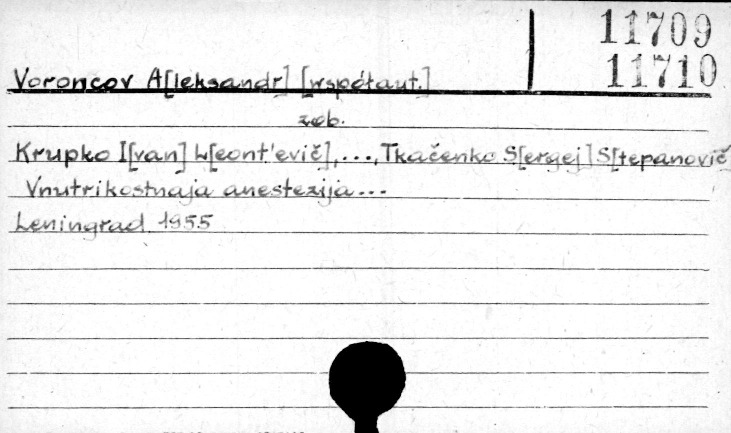 11709
11710
Voroncov A[leksandr] [współaut.]
zob.
Krupko I[van] L[eont'evič],..., Tkačenko S[ergej] S[tepanovič]
Vnutrikostnaja anestezija...
Leningrad 1955